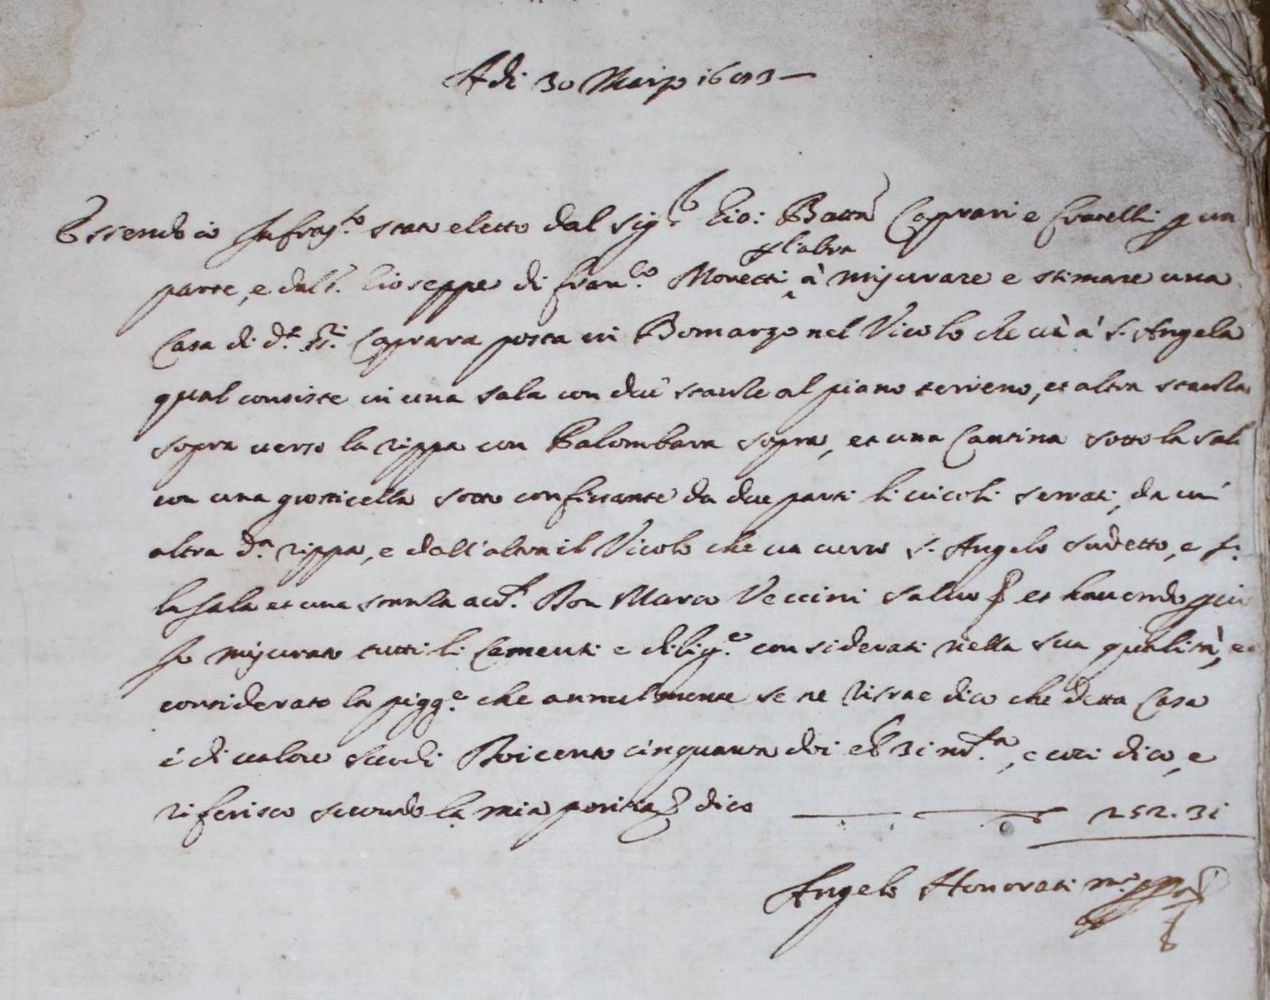 Adi 30 Marzo 1693
Essendo io Infras.to stato eletto dal sig.r Gio: Batta Caprari e fratelli p una
p l'altra
parte, e dal S. Gioseppe di Fran.co Moretti à misurare e stimare una
Casa di d.i SS.ri Caprara posta in Bomarzo nel Vicolo che và à S. Angelo
qual consiste in una sala con due stanze al piano terreno, et altra stanza
sopra verso la rippa con Palombara sopra, et una Cantina sotto la sala
con una grotticella sotto confinante da due parti li vicoli serrati, da un'
altra d.a rippa, e dall'altra il Vicolo che va verso S. Angelo sudetto, e
la sala et una stanza Don Marco Veccini salvi et havendo
Io misurato tutti li Cementi e dilig.e considerati nella sua qualità, et
considerato la pigg.e che annualmente se ne ritrae dico che detta Casa
é di valore scudi Doicento cinquanta doi e b 31 m.ta, e così dico, e
riferisco secondo la mia peritia dico 252.31
Angelo Honorati m.o pp.a